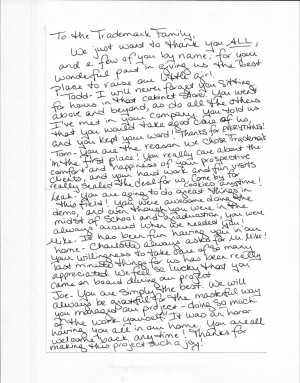 To the Trademark Family,
We just want to thank you ALL,
and a few of you by name, for your
wonderful part in giving us the best
place to raise our little girl!
Todd - I will never forget you sitting
for hours in that cabinet store! You went
above and beyond, as do all the others
I've met in your company. You told us
that you would take good care of us,
and you kept your word! Thanks for EVERYTHING!
Tom - You are the reason we chose Trademark
in the first place! You really care about the
comfort and happiness of your prospective
clients, and your hard work and fun visits
really sealed the deal for us. Come by for
cookies anytime!
Leah - You are going to do great things in
this field! You were awesome doing the
demo, and even though you were in the
midst of school and graduation, you were
always around when we needed you!
Mike - It has been fun having you in our
home - Charlotte always asks for Mr. Mike!
Your willingness to take care of so many
last minute things for us has been really
appreciated. We feel so lucky that you
came on board during our project.
Joe - You are simply the best. We will
always be grateful for the masterful way
you managed our project - doing so much
of the work yourself. It was an honor
having you all in our home. You are all
welcome back anytime! Thanks for
making this project such a joy!